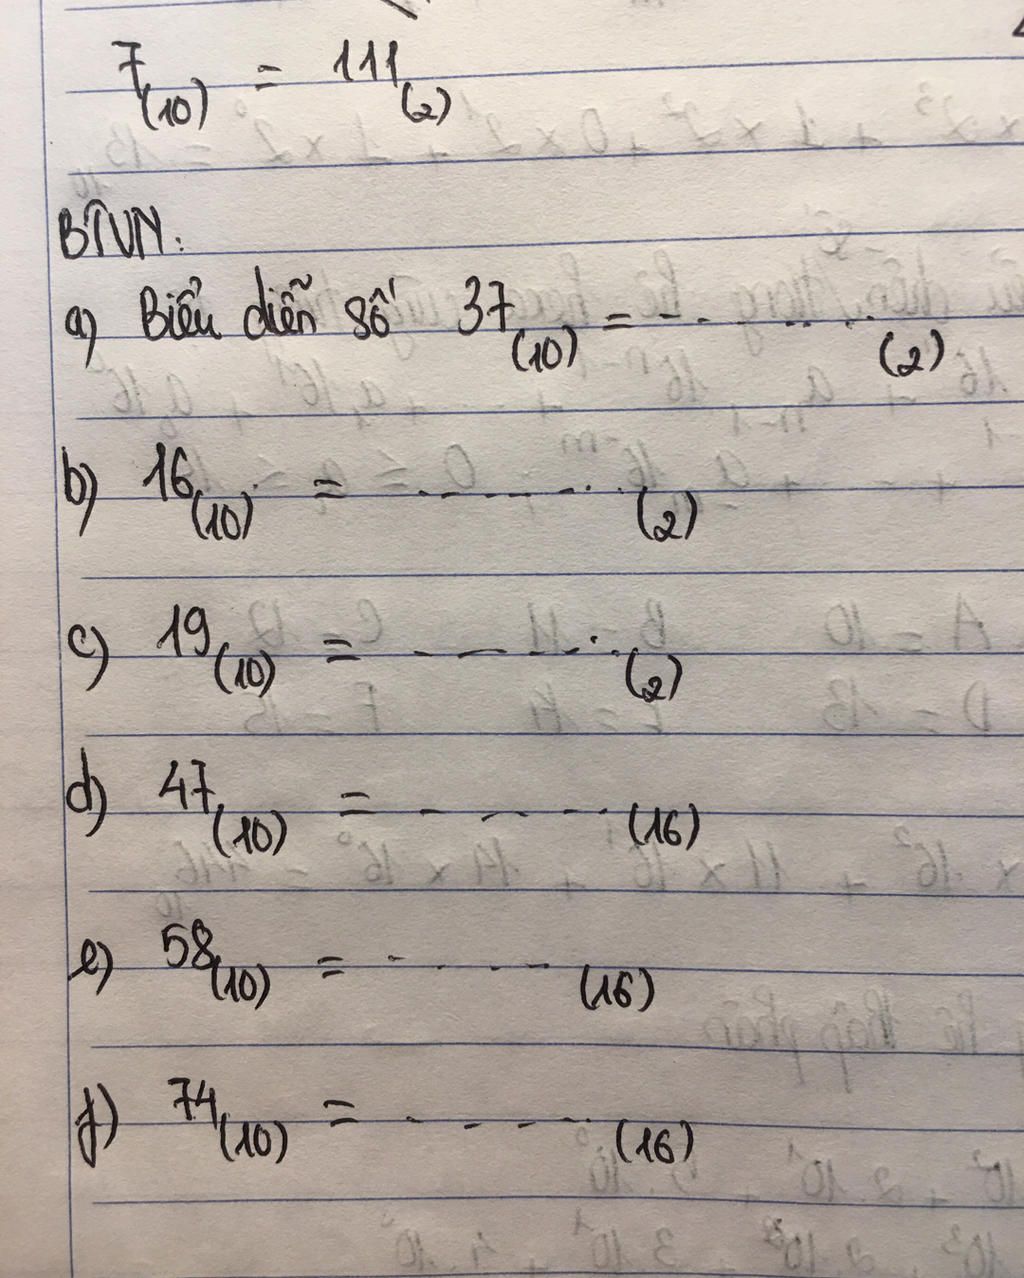 7(10) = 111(2)
BTVN:
a) Biểu diễn số 37(10) = - - - - - - - (2)
b) 16(10) = - - - - - - (2)
c) 19(10) = - - - - - - (2)
d) 47(10) = - - - - - (16)
e) 58(10) = - - - - (16)
f) 74(10) = - - - - - (16)